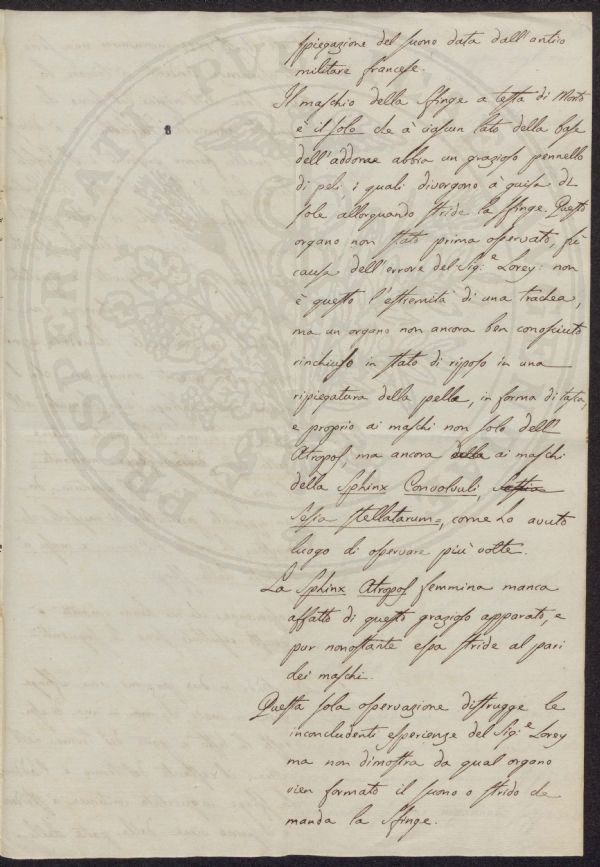 spiegazione del suono data dall'antico
militare francese.
Il maschio della Sfinge a testa di Morto
è il solo che à ciascun lato della base
dell'addome abbia un grazioso pennello
di peli i quali divergono à guisa di
sole allorquando stride la Sfinge. Questo
organo non stato prima osservato, fù
causa dell'errore del Sig.e Lorey: non
è questo l'estremità di una trachea,
ma un organo non ancora ben conosciuto
rinchiuso in stato di riposo in una
ripiegatura della pelle, in forma di tasca,
e proprio ai maschi non solo dell'
Atropos, ma ancora della ai maschi
della Sphinx Convolvuli,
Sesia stellatarum=, come ho avuto
luogo di osservare più volte.
La Sphinx Atropos femmina manca
affatto di questo grazioso apparato, e
pur nonostante essa stride al pari
dei maschi.
Questa sola osservazione distrugge le
inconcludenti esperienze del Sig.e Lorey
ma non dimostra da qual organo
vien formato il suono o strido che
manda la Sfinge.
8
PROSI PERITATI PVBL